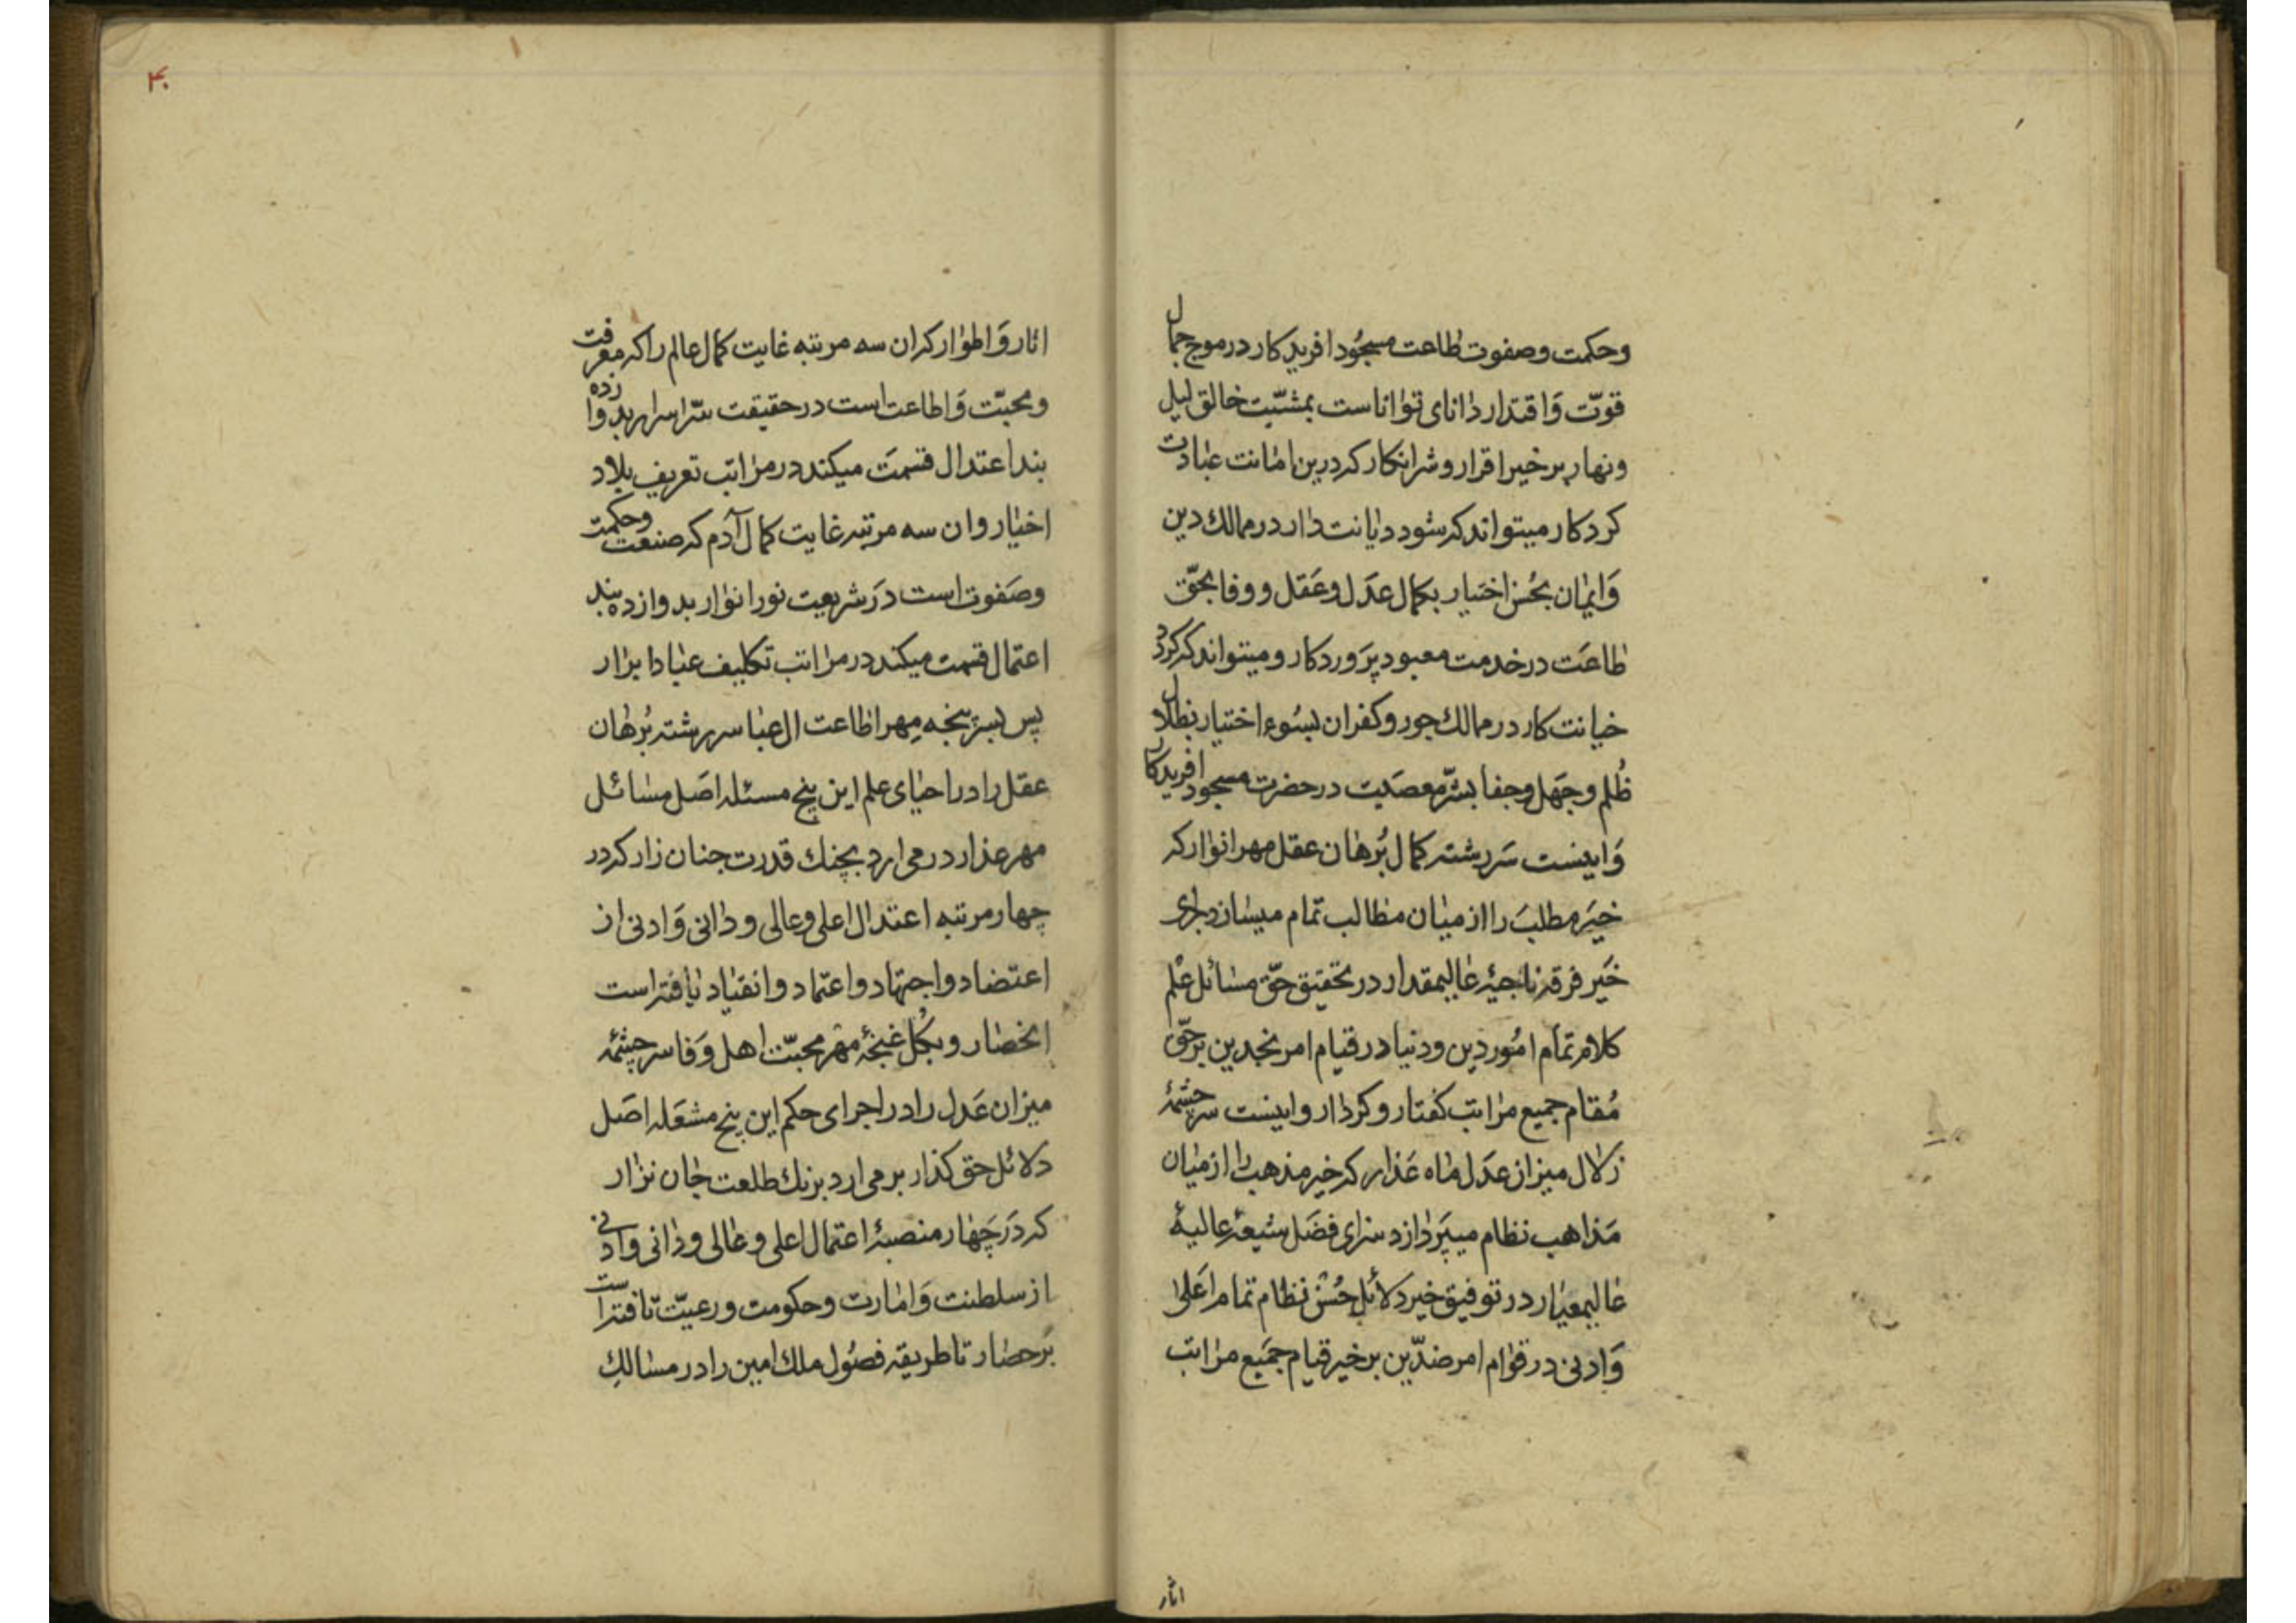 وحکمت وصفوت طاعت مسجُود افریدکار در موج جمال
قوّت وَاقتدار دانای تواناست بمشیّت خالق لیل
ونهار بر خیر اقرار و شر انکار که درین امانت عبادت
کردکار میتواند که شود دیانت دار در ممالك دین
وَایمان بحُسن اختیار بکمال عدَل وعَقل ووفا بحقّ
طاعَت در خدمت معبود پرَوردکار و میتواند که کردد
خیانت کار در ممالك جور وکفران بسُوء اختیار
ظُلم وجَهل وجفا بشرّ معصَیت در حضرت مسجود افریدکار
وَاینست سَررشته کمال بُرهان عقل مهر انوار که
خیَر مطلبَ را از میان مطالب تمام میسازد برای
خیَر فرقه ناجیهٔ عالیمقدار در تحقیق حقّ مسائل عْلم
کلام تمام امُور دین ودنیا در قیام امر نجدین بر حقّ
مُقام جمیع مراتب کفتار وکردار واینست سرچشمهٔ
زلال میزان عدَل ماه عَذار که خیر مذهب را از میان
مَذاهب نظام میپَردازد سزای فضَل شیعهٔ عالیهٔ
عالیمعیار در توفیق خیر دلائل حُسْن نظام تمام اعَلی
وَادنی در قوام امر ضدّین بر خیر قیام جمَیع مراتب
اثار
۴۰
اثار وَاطوار که ان سه مرتبه غایت کمال عالم را که معرفت
ومحبّت وَاطاعت است در حقیقت سّر اسرار بدوازده
بند اعتدال قسمَت میکند در مراتب تعریف بلاد
اختیار وان سه مرتبه غایت کمال آدم که صنعت وحکمت
وصَفوت است درَ شریعت نور انوار بدوازده بند
اعتمال قسمت میکند در مراتب تکلیف عباد ابرار
پس بسرپنجه مِهر اطاعت ال عبا سررشته بُرهان
عقل را در احیای علم این پنج مسئله اصَل مسائل
مهر عذار در می ارد بچنك قدرت جنان زار که در
چهار مرتبه اعتدال اعلی وعالی ودانی وَادنی از
اعتضاد واجتهاد واعتماد وانقیاد یافته است
انحصار وبکُل غنچهٔ مهر محبّت اهل وَفا سرچشمهٔ
میزان عَدل را در اجرای حکم این پنج مشعَله اصَل
دلائل حق کذار بر می ارد برنك طلعت جان نزار
که درَ چَهار منصبهٔ اعتمال اعلی وعالی ودانی وادنی
از سلطنت وَامارت وحکومت ورعیّت یافته است
برَحصار تا طریقه فصُول ملك امین را در مسالكِ